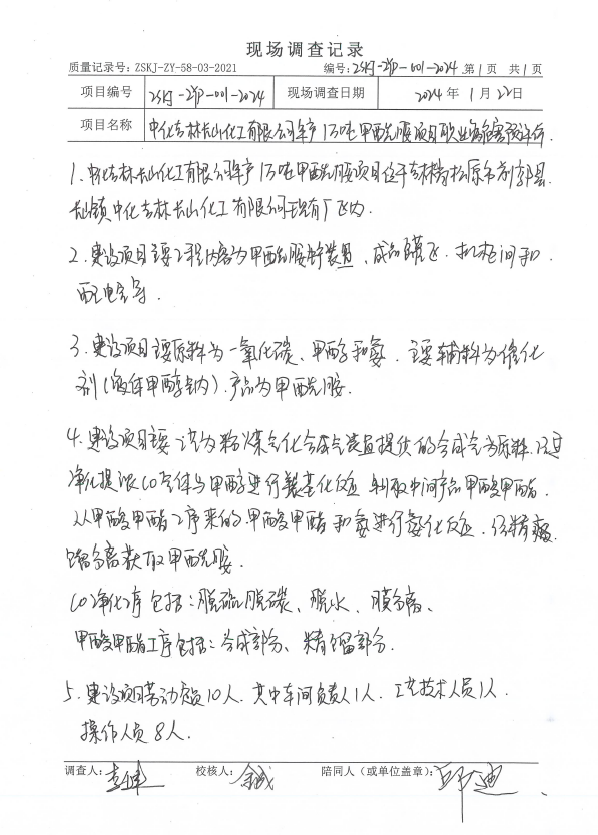 现场调查记录
质量记录号：ZSKJ-ZY-58-03-2021 编号：ZSKJ-ZYP-001-2024 第1页 共1页
项目编号 ZSKJ-ZYP-001-2024 现场调查日期 2024年1月22日
项目名称 中化吉林长山化工有限公司年产1万吨甲酰胺项目职业病危害预评价
1、中化吉林长山化工有限公司年产1万吨甲酰胺项目位于吉林省松原市前郭县
长山镇中化吉林长山化工有限公司现有厂区内.
2、建设项目主要工程内容为甲酰胺生产装置、成品罐区、机柜间和
配电室等.
3、建设项目主要原料为一氧化碳、甲醇和氨.主要辅料为催化
剂（液体甲醇钠）.产品为甲酰胺.
4、建设项目主要工艺为粉煤气化合成气装置提供的合成气为原料.经过
净化提浓CO气体与甲醇进行羰基化反应 制取中间产品甲酸甲酯.
从甲酸甲酯工序来的甲酸甲酯和氨进行氨化反应.经精馏
分离获取甲酰胺.
CO净化工序包括：脱硫脱碳、脱水、膜分离.
甲酸甲酯工序包括：合成部分、精馏部分.
5、建设项目劳动定员10人.其中车间负责人1人.工艺技术人员1人.
操作人员8人.
调查人： 校核人： 陪同人（或单位盖章）：邱迪